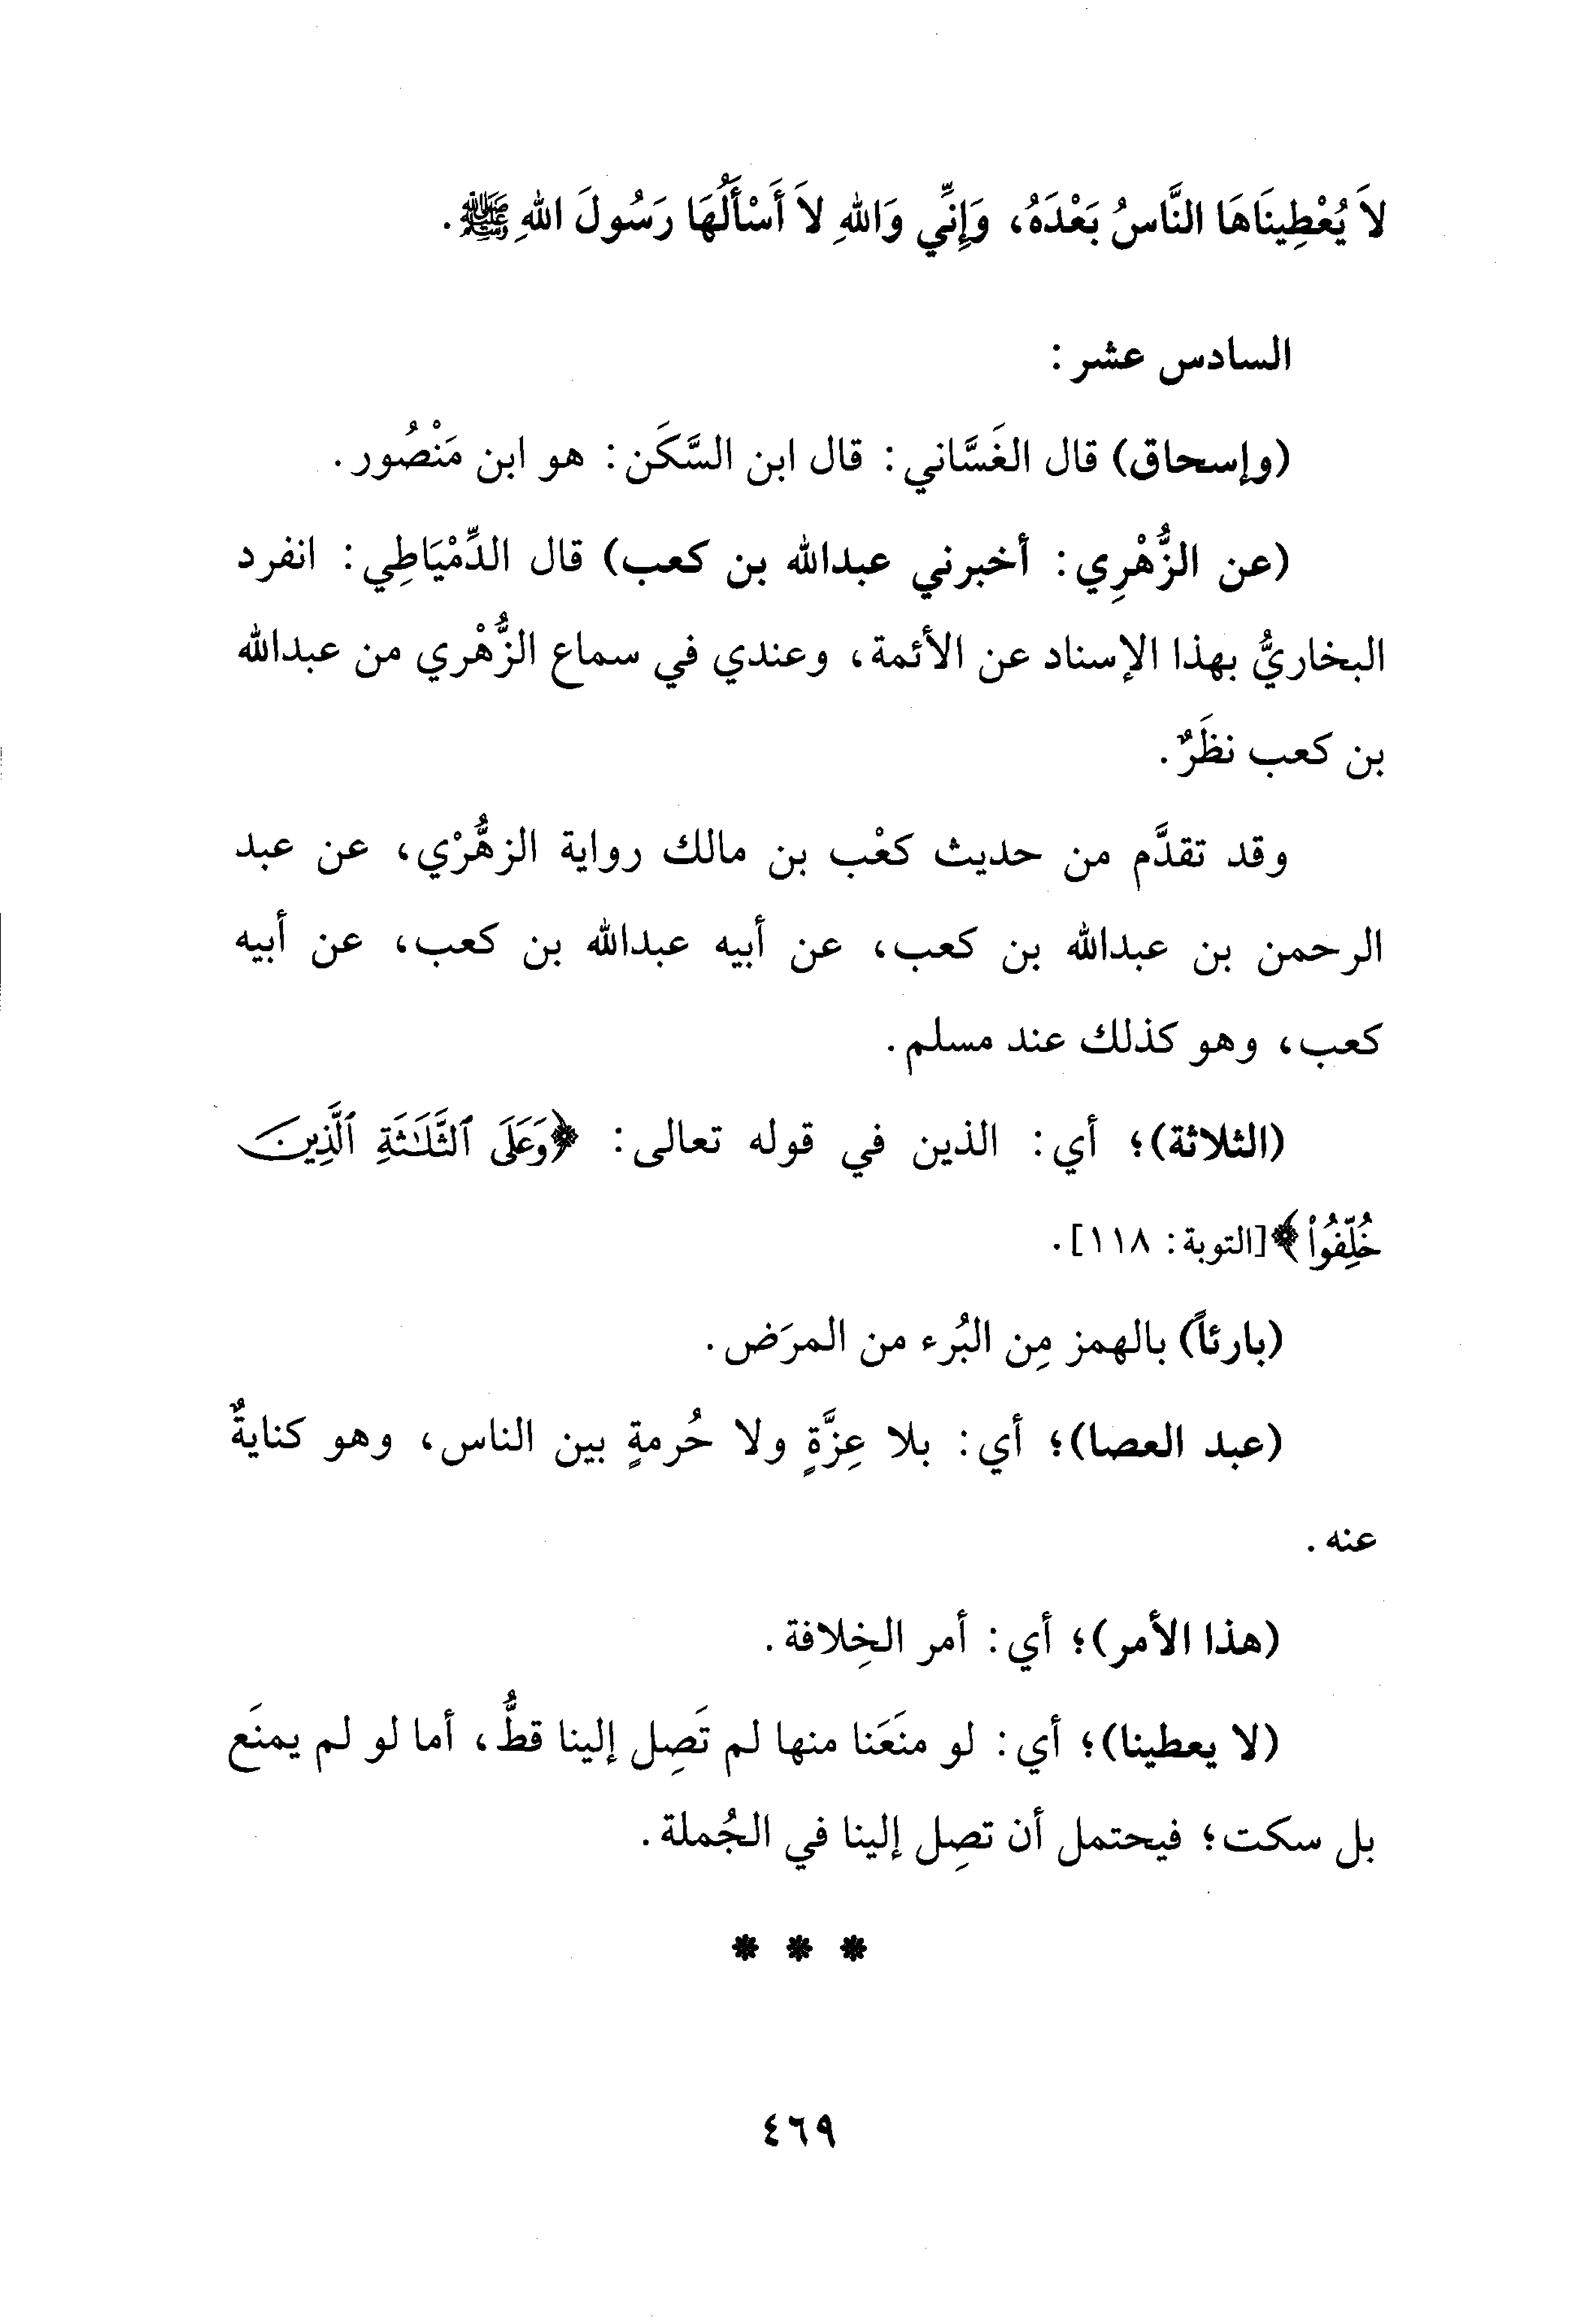 لاَ يُعْطِينَاهَا النَّاسُ بَعْدَهُ، وَإِنِّي وَاللهِ لاَ أَسْأَلُهَا رَسُولَ اللهِ ﷺ.
السادس عشر:
(وإسحاق) قال الغَسَّاني: قال ابن السَّكَن: هو ابن مَنْصُور.
(عن الزُّهْرِي: أخبرني عبدالله بن كعب) قال الدِّمْيَاطِي: انفرد
البخاريُّ بهذا الإسناد عن الأئمة، وعندي في سماع الزُّهْري من عبدالله
بن كعب نظَرٌ.
وقد تقدَّم من حديث كعْب بن مالك رواية الزهُّرْي، عن عبد
الرحمن بن عبدالله بن كعب، عن أبيه عبدالله بن كعب، عن أبيه
كعب، وهو كذلك عند مسلم.
(الثلاثة)؛ أي: الذين في قوله تعالى: ﴿وَعَلَى ٱلثَّلَٰثَةِ ٱلَّذِينَ
خُلِّفُواْ﴾[التوبة: ١١٨].
(بارئاً) بالهمز مِن البُرء من المرَض.
(عبد العصا)؛ أي: بلا عِزَّةٍ ولا حُرمةٍ بين الناس، وهو كنايةٌ
عنه.
(هذا الأمر)؛ أي: أمر الخِلافة.
(لا يعطينا)؛ أي: لو منَعَنا منها لم تَصِل إلينا قطُّ، أما لو لم يمنَع
بل سكت؛ فيحتمل أن تصِل إلينا في الجُملة.
* * *
٤٦٩